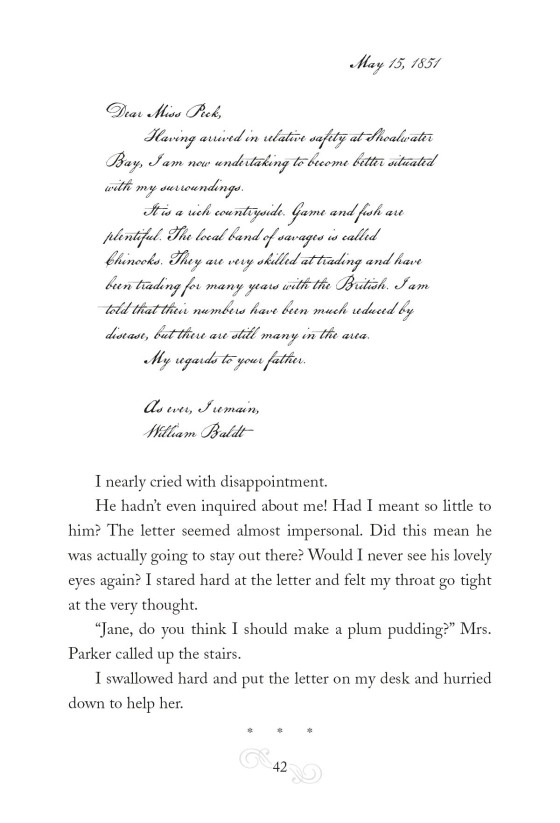 May 15, 1851
Dear Miss Peck,
Having arrived in relative safety at Shoalwater
Bay, I am now undertaking to become better situated
with my surroundings.
It is a rich countryside. Game and fish are
plentiful. The local band of savages is called
Chinooks. They are very skilled at trading and have
been trading for many years with the British. I am
told that their numbers have been much reduced by
disease, but there are still many in the area.
My regards to your father.
As ever, I remain,
William Baldt
I nearly cried with disappointment.
He hadn’t even inquired about me! Had I meant so little to
him? The letter seemed almost impersonal. Did this mean he
was actually going to stay out there? Would I never see his lovely
eyes again? I stared hard at the letter and felt my throat go tight
at the very thought.
“Jane, do you think I should make a plum pudding?” Mrs.
Parker called up the stairs.
I swallowed hard and put the letter on my desk and hurried
down to help her.
* * *
42